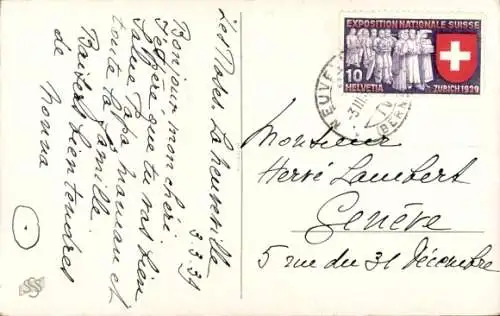 Les Roses. La Neuveville
3.3.39
Bonjour, mon cheri
J'espère que tu vas bien
Salue Papa, maman et
toute la famille.
Baisers bien tendres
de Nonna
SSS
EXPOSITION NATIONALE SUISSE
10
HELVETIA
ZURICH 1939
NEUVEV
BERN
Monsieur
Hervé Lambert
Genève
5 rue du 31 Décembre